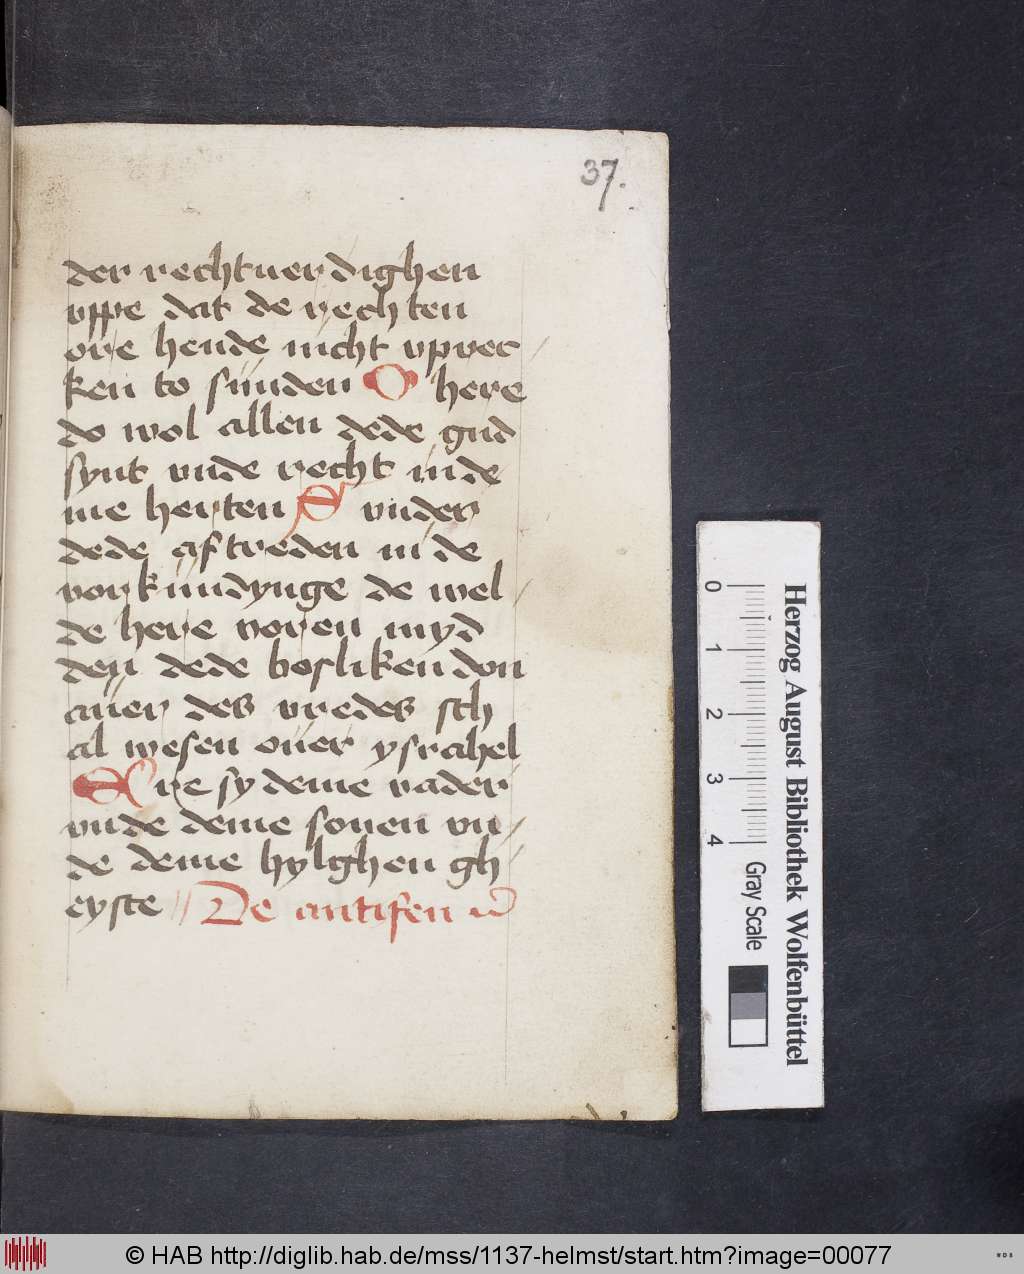 37.
der rechtuerdighen
vppe dat de rechten
ore hende nicht vpver
ken to sunden O here
do wol allen dede gud
synt vnde recht in de
me herten S vnder
dede aftreden in de
vorkundynge de wel
de here voren myd
den dede bosliken don
auer des vredes sch
al wesen ouer ysrahel
Ere sy deme vader
vnde deme sonen vn
de deme hylghen gh
eyste De antifen
Herzog August Bibliothek Wolfenbüttel
0 1 2 3 4
Gray Scale
© HAB http://diglib.hab.de/mss/1137-helmst/start.htm?image=00077